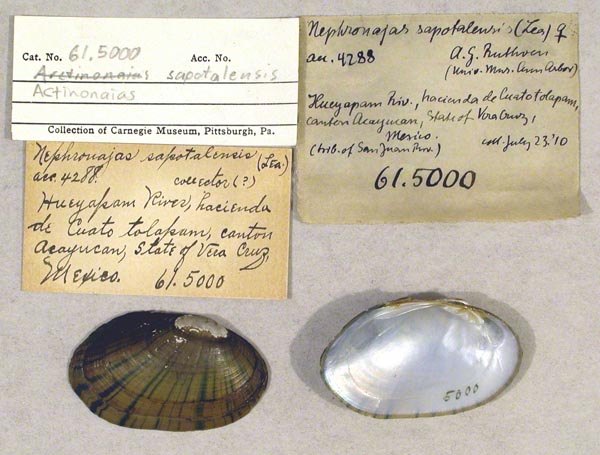 Cat. No. 61.5000 Acc. No.
Arctinonaias sapotalensis
Actinonaias
Collection of Carnegie Museum, Pittsburgh, Pa.
Nephronajas sapotalensis (Lea)
acc. 4288. collector (?)
Hueyapam River, hacienda
de Cuato tolapam, canton
Acayucan, State of Vera Cruz,
Mexico. 61.5000
Nephronajas sapotalensis (Lea) ♀
acc. 4288 A. G. Ruthven
(Univ. Mus. Ann Arbor)
Hueyapam Riv., hacienda de Cuatotolapam,
canton Acayucan, State of Vera Cruz,
Mexico.
(trib. of San Juan Riv.) coll. July 23.'10
61.5000
5000